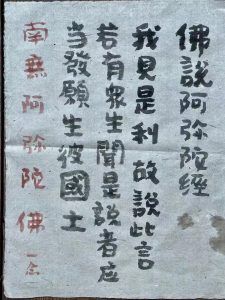 佛說阿弥陀經
我見是利故說此言
若有眾生聞是說者应
當發願生彼國土
南無阿弥陀佛